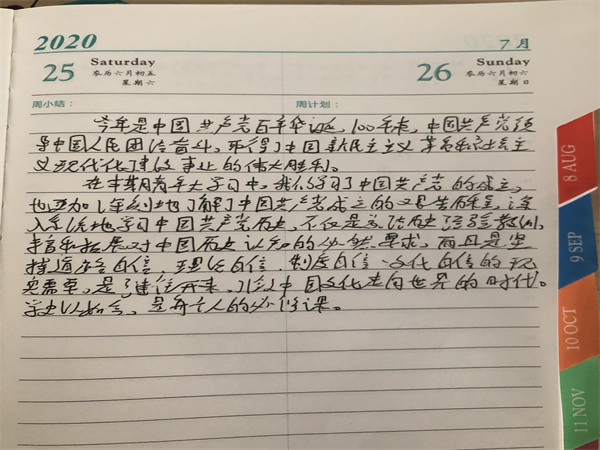 2020
7月
25
Saturday
农历六月初五
星期六
26
Sunday
农历六月六
星期日
周小结：
周计划：
今年是中国共产党百年华诞，100年来，中国共产党领
导中国人民团结奋斗，取得了中国新民主主义革命和社会主
义现代化建设事业的伟大胜利。
在本期青年大学习中，我们学习了中国共产党的成立，
也更加深刻地了解了中国共产党成立的历史必然性，深
入系统地学习中国共产党历史，不仅是总结历史经验教训，
丰富和拓展对中国历史认知的必然要求，而且是坚
持道路自信、理论自信、制度自信、文化自信的现
实需要，是了继往开来，引领中国文化走向世界的时代。
学史以知今，是每个人的必修课。
8 AUG
9 SEP
10 OCT
11 NOV